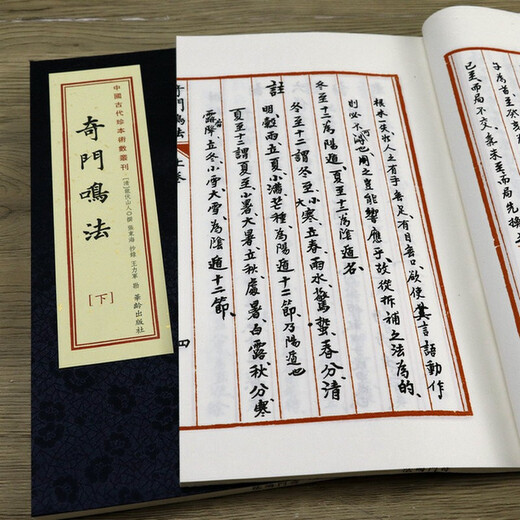 中國古代珍本術數叢刊
奇門鳴法
[清]龍伏山人○撰 張東海 抄錄 王力軍 勘
華齡出版社
[下]
已至而局不交、某未至而局先
人之有手無足、有目無口、欲使其言語動作
則必不 也用之豈能響應乎、故從拆補之法為的、
冬至十二為陽遁夏至十二為陰遁名、
冬至十二謂冬至、小寒、立春、雨水、驚蟄、春分、清
註
明、穀雨、立夏、小滿、芒種、為陽遁十二節、乃陽遁也
夏至十二謂夏至、小暑、大暑、立秋、處暑、白露、秋分、寒
霜降、立冬、小雪、大雪、為陰遁十二節、
奇門鳴法
四